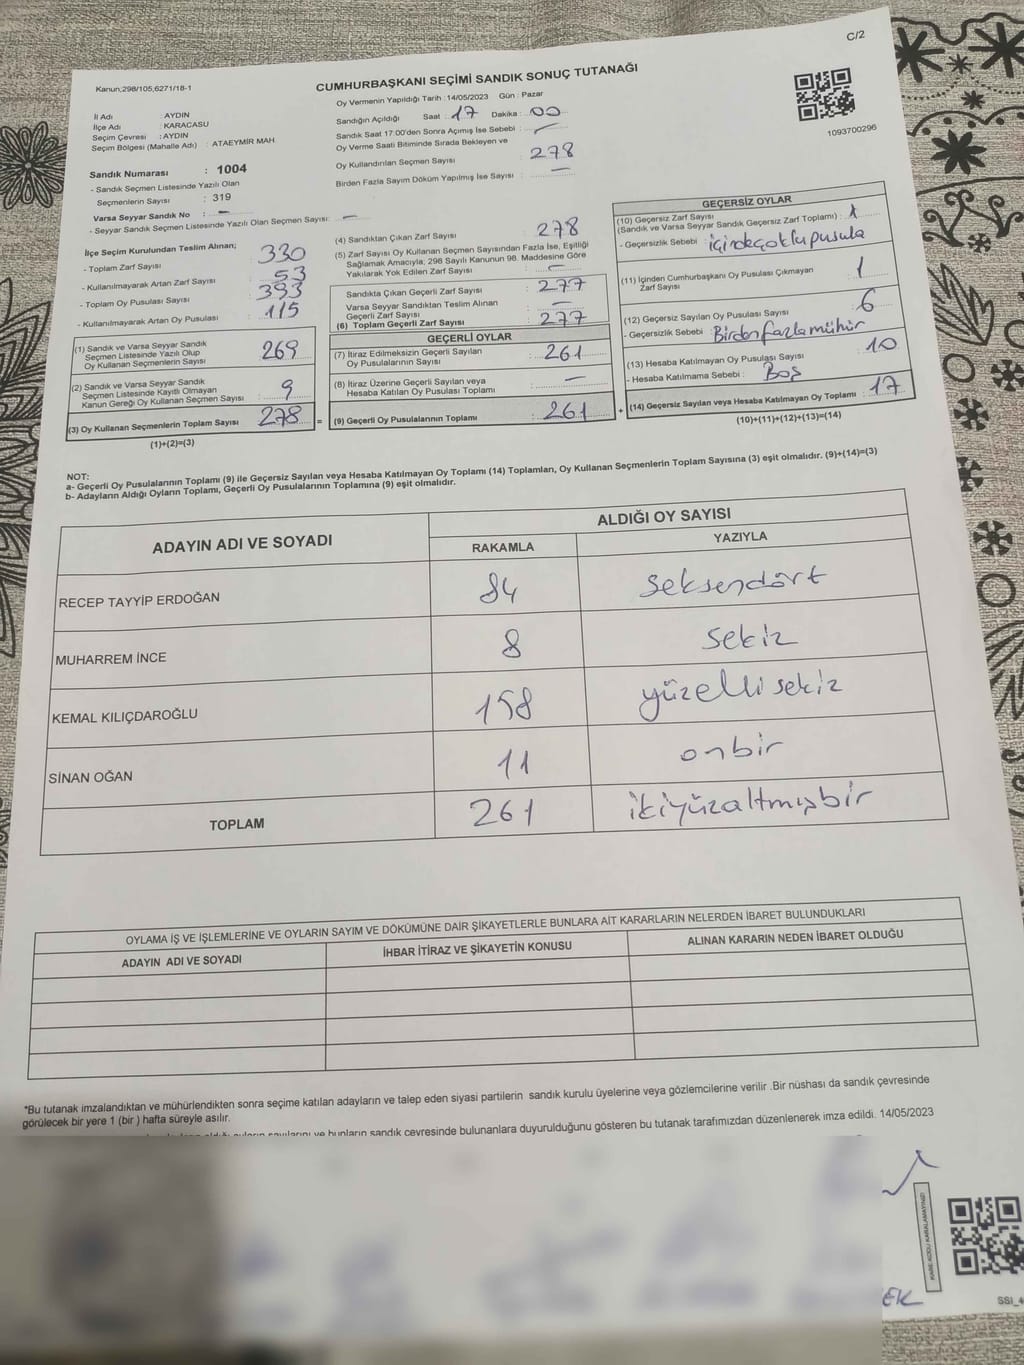 C/2
Kanun,298/105,6271/18-1
CUMHURBAŞKANI SEÇİMİ SANDIK SONUÇ TUTANAĞI
Oy Vermenin Yapıldığı Tarih :14/05/2023 Gün : Pazar
İl Adı : AYDIN
İlçe Adı : KARACASU
Seçim Çevresi : AYDIN
Seçim Bölgesi (Mahalle Adı) : ATAEYMİR MAH
Sandık Numarası : 1004
- Sandık Seçmen Listesinde Yazılı Olan
Seçmenlerin Sayısı : 319
Varsa Seyyar Sandık No : -
- Seyyar Sandık Seçmen Listesinde Yazılı Olan Seçmen Sayısı: -
Sandığın Açıldığı Saat : 17 Dakika : 00
Sandık Saat 17:00'den Sonra Açımış İse Sebebi : -
Oy Verme Saati Bitiminde Sırada Bekleyen ve
Oy Kullandırılan Seçmen Sayısı : 278
Birden Fazla Sayım Döküm Yapılmış İse Sayısı : -
1093700296
İlçe Seçim Kurulundan Teslim Alınan;
- Toplam Zarf Sayısı 330
- Kullanılmayarak Artan Zarf Sayısı : 53
- Toplam Oy Pusulası Sayısı 393
- Kullanılmayarak Artan Oy Pusulası : 115
(1) Sandık ve Varsa Seyyar Sandık
Seçmen Listesinde Yazılı Olup
Oy Kullanan Seçmenlerin Sayısı 269
(2) Sandık ve Varsa Seyyar Sandık
Seçmen Listesinde Kayıtlı Olmayan
Kanun Gereği Oy Kullanan Seçmen Sayısı : 9
(3) Oy Kullanan Seçmenlerin Toplam Sayısı 278 =
(1)+(2)=(3)
(4) Sandıktan Çıkan Zarf Sayısı : 278
(5) Zarf Sayısı Oy Kullanan Seçmen Sayısından Fazla İse, Eşitliği
Sağlamak Amacıyla; 298 Sayılı Kanunun 98. Maddesine Göre
Yakılarak Yok Edilen Zarf Sayısı : -
Sandıkta Çıkan Geçerli Zarf Sayısı : 277
Varsa Seyyar Sandıktan Teslim Alınan
Geçerli Zarf Sayısı : -
(6) Toplam Geçerli Zarf Sayısı : 277
GEÇERLİ OYLAR
(7) İtiraz Edilmeksizin Geçerli Sayılan
Oy Pusulalarının Sayısı : 261
(8) İtiraz Üzerine Geçerli Sayılan veya
Hesaba Katılan Oy Pusulası Toplamı : -
(9) Geçerli Oy Pusulalarının Toplamı : 261 +
GEÇERSİZ OYLAR
(10) Geçersiz Zarf Sayısı
(Sandık ve Varsa Seyyar Sandık Geçersiz Zarf Toplamı) : 1
- Geçersizlik Sebebi : içinde çoklu pusula
(11) İçinden Cumhurbaşkanı Oy Pusulası Çıkmayan
Zarf Sayısı : 1
(12) Geçersiz Sayılan Oy Pusulası Sayısı : 6
- Geçersizlik Sebebi : Birden fazla mühür
(13) Hesaba Katılmayan Oy Pusulası Sayısı : 10
- Hesaba Katılmama Sebebi : Boş
(14) Geçersiz Sayılan veya Hesaba Katılmayan Oy Toplamı : 17
(10)+(11)+(12)+(13)=(14)
NOT:
a- Geçerli Oy Pusulalarının Toplamı (9) ile Geçersiz Sayılan veya Hesaba Katılmayan Oy Toplamı (14) Toplamları, Oy Kullanan Seçmenlerin Toplam Sayısına (3) eşit olmalıdır. (9)+(14)=(3)
b- Adayların Aldığı Oyların Toplamı, Geçerli Oy Pusulalarının Toplamına (9) eşit olmalıdır.
ADAYIN ADI VE SOYADI
ALDIĞI OY SAYISI
RAKAMLA YAZIYLA
RECEP TAYYİP ERDOĞAN 84 seksendört
MUHARREM İNCE 8 sekiz
KEMAL KILIÇDAROĞLU 158 yüzelli sekiz
SİNAN OĞAN 11 onbir
TOPLAM 261 ikiyüzaltmışbir
OYLAMA İŞ VE İŞLEMLERİNE VE OYLARIN SAYIM VE DÖKÜMÜNE DAİR ŞİKAYETLERLE BUNLARA AİT KARARLARIN NELERDEN İBARET BULUNDUKLARI
ADAYIN ADI VE SOYADI İHBAR İTİRAZ VE ŞİKAYETİN KONUSU ALINAN KARARIN NEDEN İBARET OLDUĞU
*Bu tutanak imzalandıktan ve mühürlendikten sonra seçime katılan adayların ve talep eden siyasi partilerin sandık kurulu üyelerine veya gözlemcilerine verilir .Bir nüshası da sandık çevresinde
görülecek bir yere 1 (bir ) hafta süreyle asılır.
ve bunların sandık çevresinde bulunanlara duyurulduğunu gösteren bu tutanak tarafımızdan düzenlenerek imza edildi. 14/05/2023
KARE KODU KARALAMAYINIZ!
EK
SSI_4